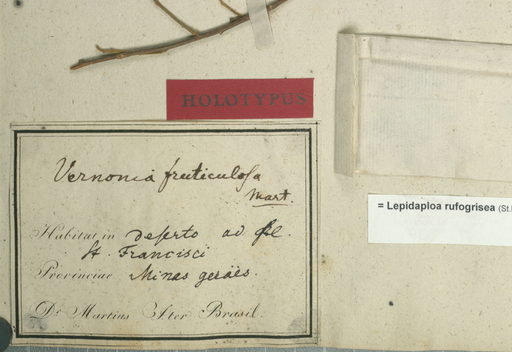 HOLOTYPUS
Vernonia fruticulosa
Mart.
Habitat in deserto ad fl.
St. Francisci
Provinciae Minas geraës.
Dr Martius Iter Brasil.
= Lepidaploa rufogrisea (St.